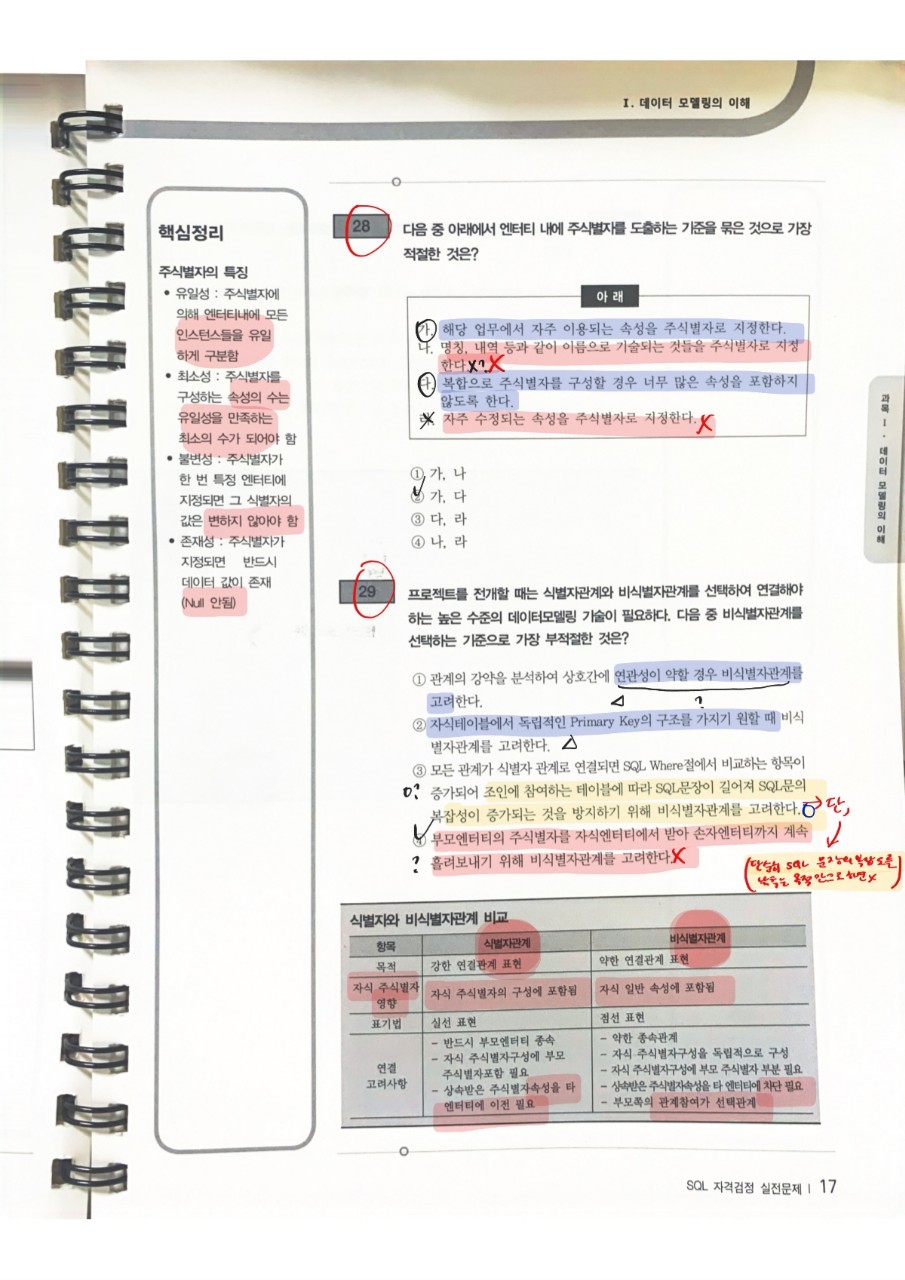 I. 데이터 모델링의 이해
핵심정리
주식별자의 특징
• 유일성 : 주식별자에
의해 엔터티내에 모든
인스턴스들을 유일
하게 구분함
• 최소성 : 주식별자를
구성하는 속성의 수는
유일성을 만족하는
최소의 수가 되어야 함
• 불변성 : 주식별자가
한 번 특정 엔터티에
지정되면 그 식별자의
값은 변하지 않아야 함
• 존재성 : 주식별자가
지정되면 반드시
데이터 값이 존재
(Null 안됨)
28 다음 중 아래에서 엔터티 내에 주식별자를 도출하는 기준을 묶은 것으로 가장
적절한 것은?
아 래
가. 해당 업무에서 자주 이용되는 속성을 주식별자로 지정한다.
나. 명칭, 내역 등과 같이 이름으로 기술되는 것들을 주식별자로 지정
한다. x? X
다. 복합으로 주식별자를 구성할 경우 너무 많은 속성을 포함하지
않도록 한다.
라. 자주 수정되는 속성을 주식별자로 지정한다. X
① 가, 나
② 가, 다
③ 다, 라
④ 나, 라
29 프로젝트를 전개할 때는 식별자관계와 비식별자관계를 선택하여 연결해야
하는 높은 수준의 데이터모델링 기술이 필요하다. 다음 중 비식별자관계를
선택하는 기준으로 가장 부적절한 것은?
① 관계의 강약을 분석하여 상호간에 연관성이 약할 경우 비식별자관계를
고려한다. △ ?
② 자식테이블에서 독립적인 Primary Key의 구조를 가지기 원할 때 비식
별자관계를 고려한다. △
③ 모든 관계가 식별자 관계로 연결되면 SQL Where절에서 비교하는 항목이
증가되어 조인에 참여하는 테이블에 따라 SQL문장이 길어져 SQL문의
복잡성이 증가되는 것을 방지하기 위해 비식별자관계를 고려한다. O → 단,
④ 부모엔터티의 주식별자를 자식엔터티에서 받아 손자엔터티까지 계속
? 흘려보내기 위해 비식별자관계를 고려한다. X
식별자와 비식별자관계 비교
항목 식별자관계 비식별자관계
목적 강한 연결관계 표현 약한 연결관계 표현
자식 주식별자
영향 자식 주식별자의 구성에 포함됨 자식 일반 속성에 포함됨
표기법 실선 표현 점선 표현
연결
고려사항
- 반드시 부모엔터티 종속
- 자식 주식별자구성에 부모
주식별자포함 필요
- 상속받은 주식별자속성을 타
엔터티에 이전 필요
- 약한 종속관계
- 자식 주식별자구성을 독립적으로 구성
- 자식 주식별자구성에 부모 주식별자 부분 필요
- 상속받은 주식별자속성을 타 엔터티에 차단 필요
- 부모쪽의 관계참여가 선택관계
과목 I · 데이터 모델링의 이해
SQL 자격검정 실전문제 | 17